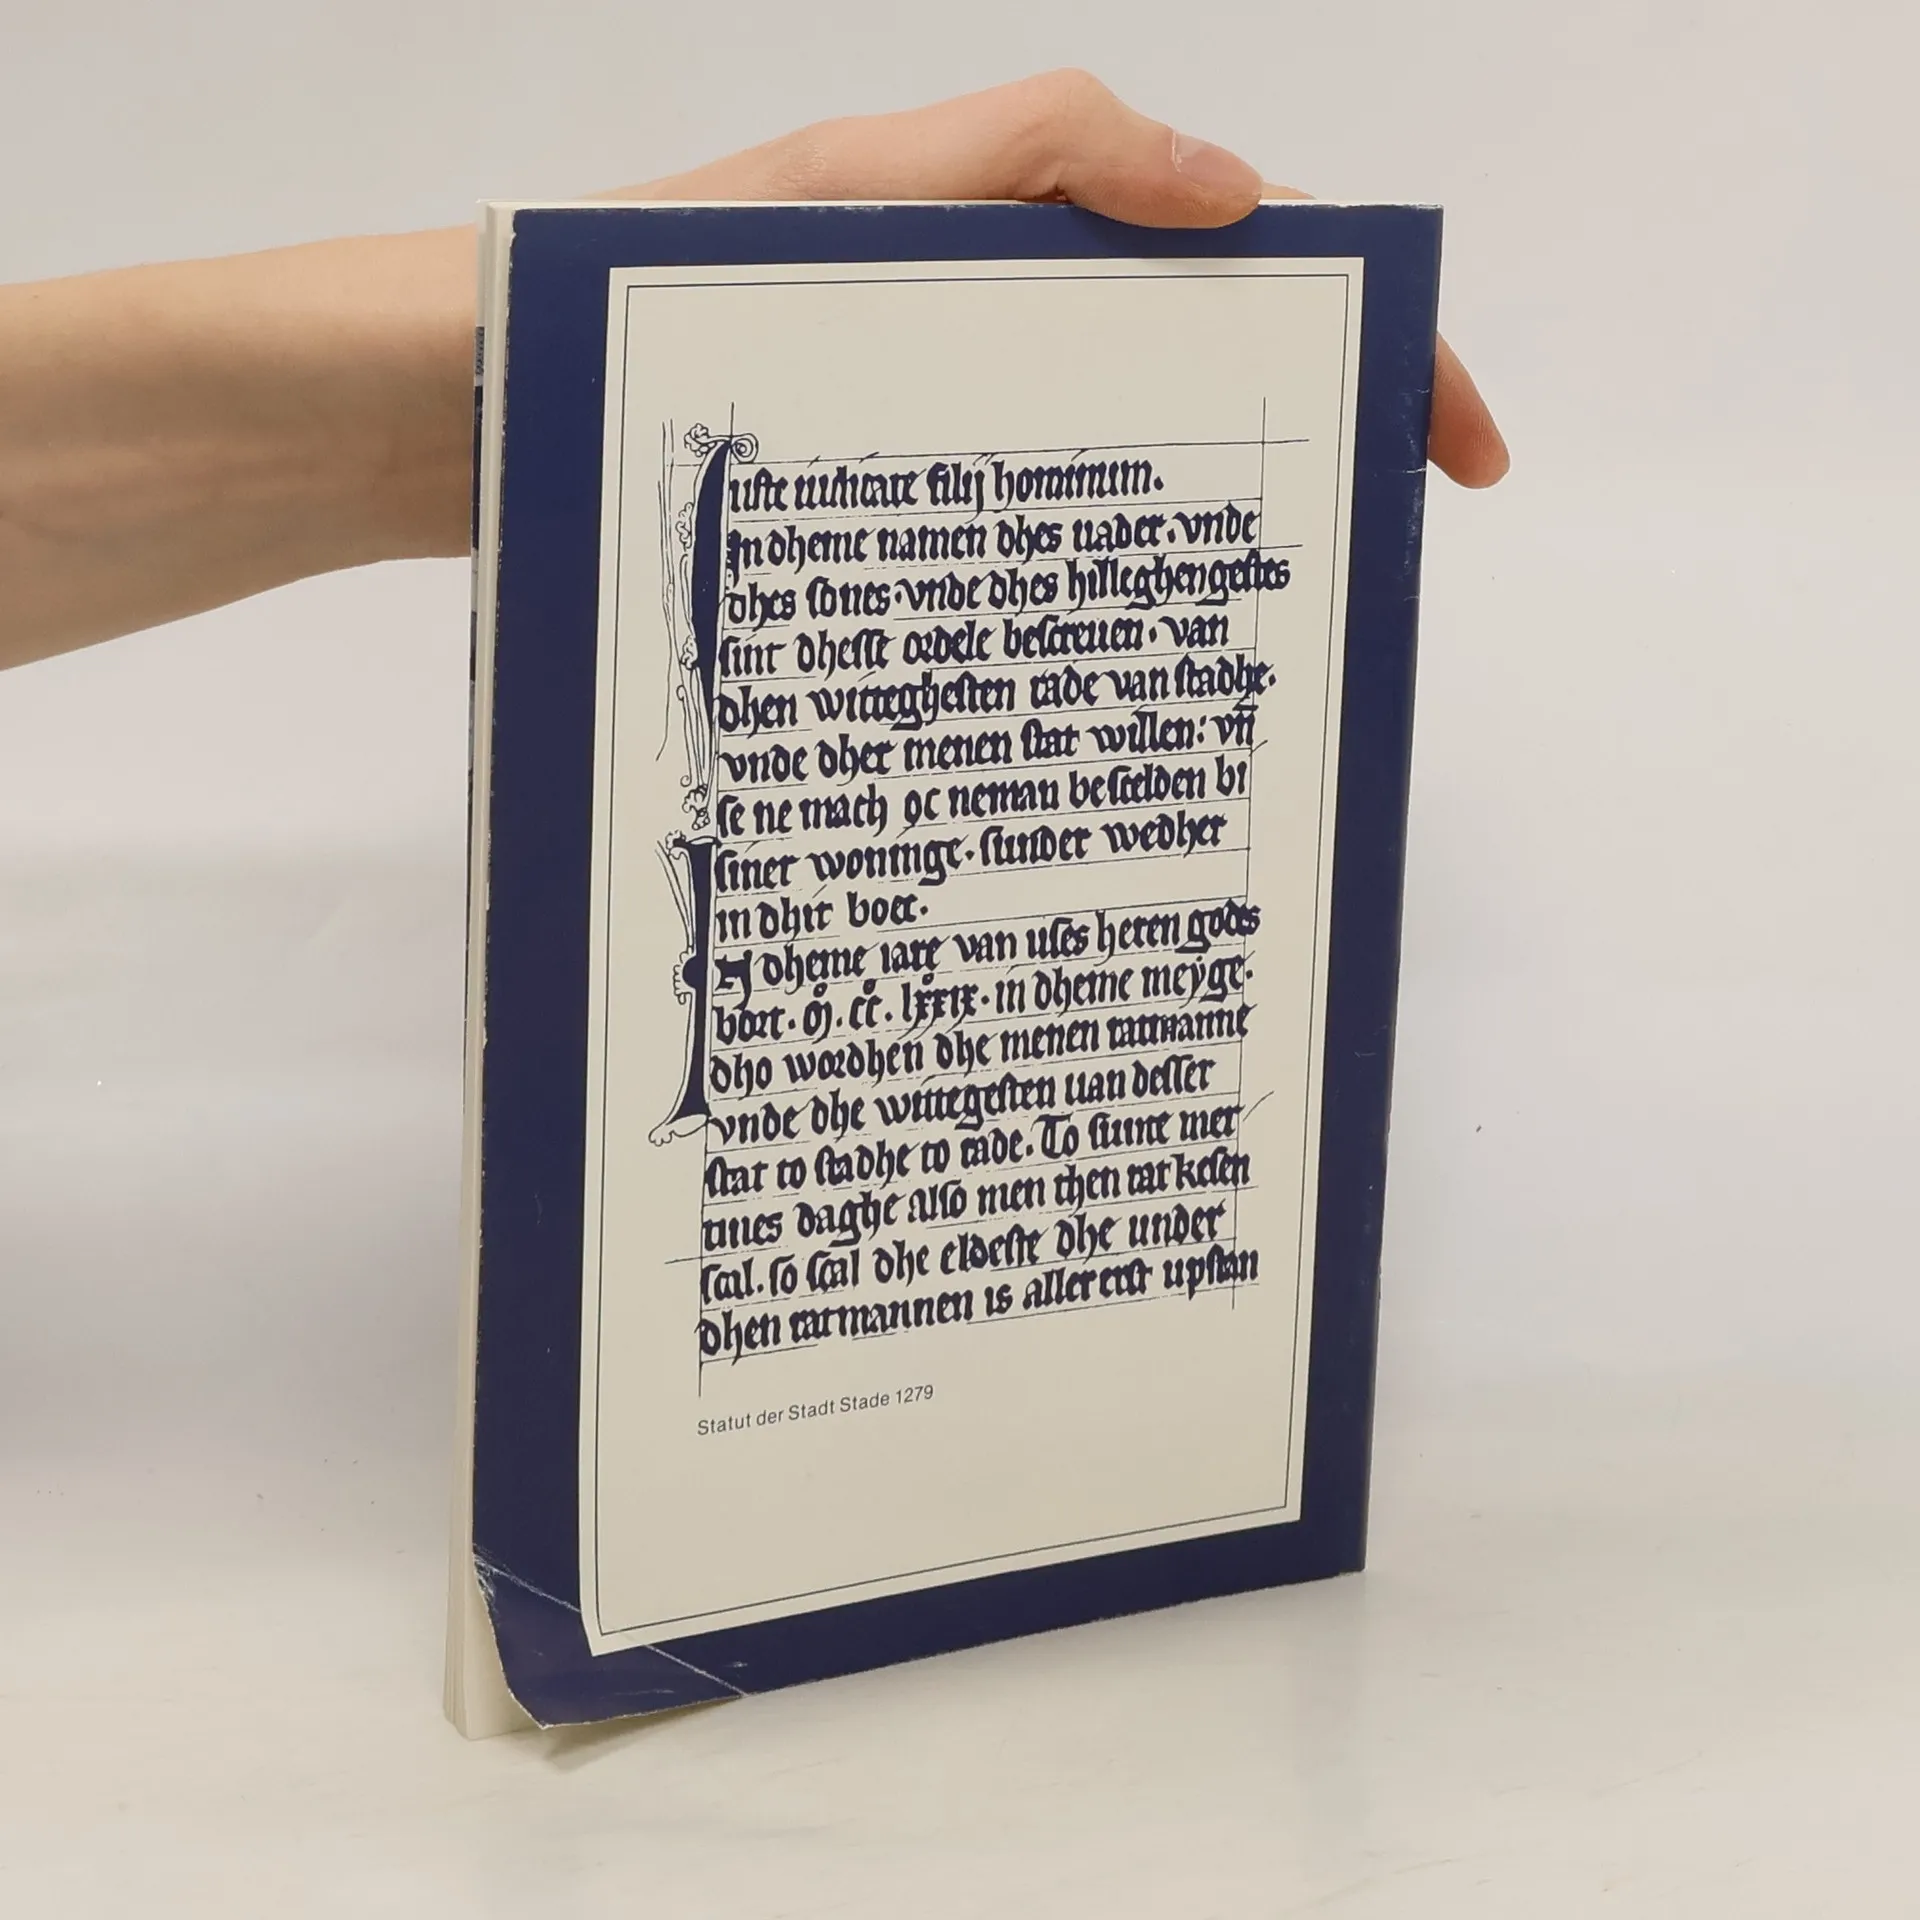 Iuste iudicate filij hominum.
In dheme namen dhes uader. vnde
dhes sones. vnde dhes hilleghen gestes
sint dhesse ordele bescreuen. van
dhen witteghesten rade van stadhe.
vnde dher menen stat willen: vn̄
se ne mach oc neman bescelden bi
siner woninge. sunder wedher
in dhit boec.
IN dheme iare van uses heren godes
bort. M̊. cc̊. lxxix̊. in dheme meyge.
dho wordhen dhe menen ratmanne
vnde dhe wittegesten uan desser
stat to stadhe to rade. To sunte mer
tines daghe also men then rat kesen
scal. so scal dhe eldeste dhe under
dhen ratmannen is aller erst upstan
Statut der Stadt Stade 1279